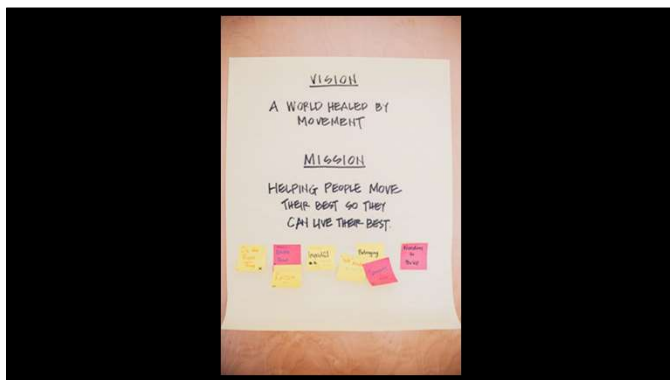 VISION
A WORLD HEALED BY
MOVEMENT
MISSION
HELPING PEOPLE MOVE
THEIR BEST SO THEY
CAN LIVE THEIR BEST.
Impactful
Belonging